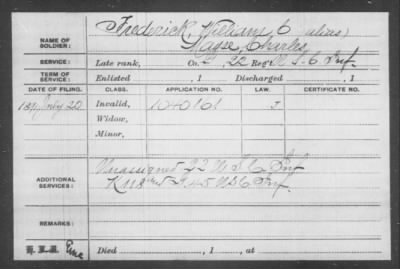 Frederick, William C (alias)
NAME OF SOLDIER: Magee, Charles
SERVICE: Late rank, Co. , 22 Reg't U.S.C. Inf.
TERM OF SERVICE: Enlisted , 1 Discharged , 1
DATE OF FILING. CLASS. APPLICATION NO. LAW. CERTIFICATE NO.
1891 July 20 Invalid, 1040101 J
Widow,
Minor,
ADDITIONAL SERVICES: Unassigned 22 U.S.C. Inf
45 U.S.C. Inf.
REMARKS:
Died , 1 , at